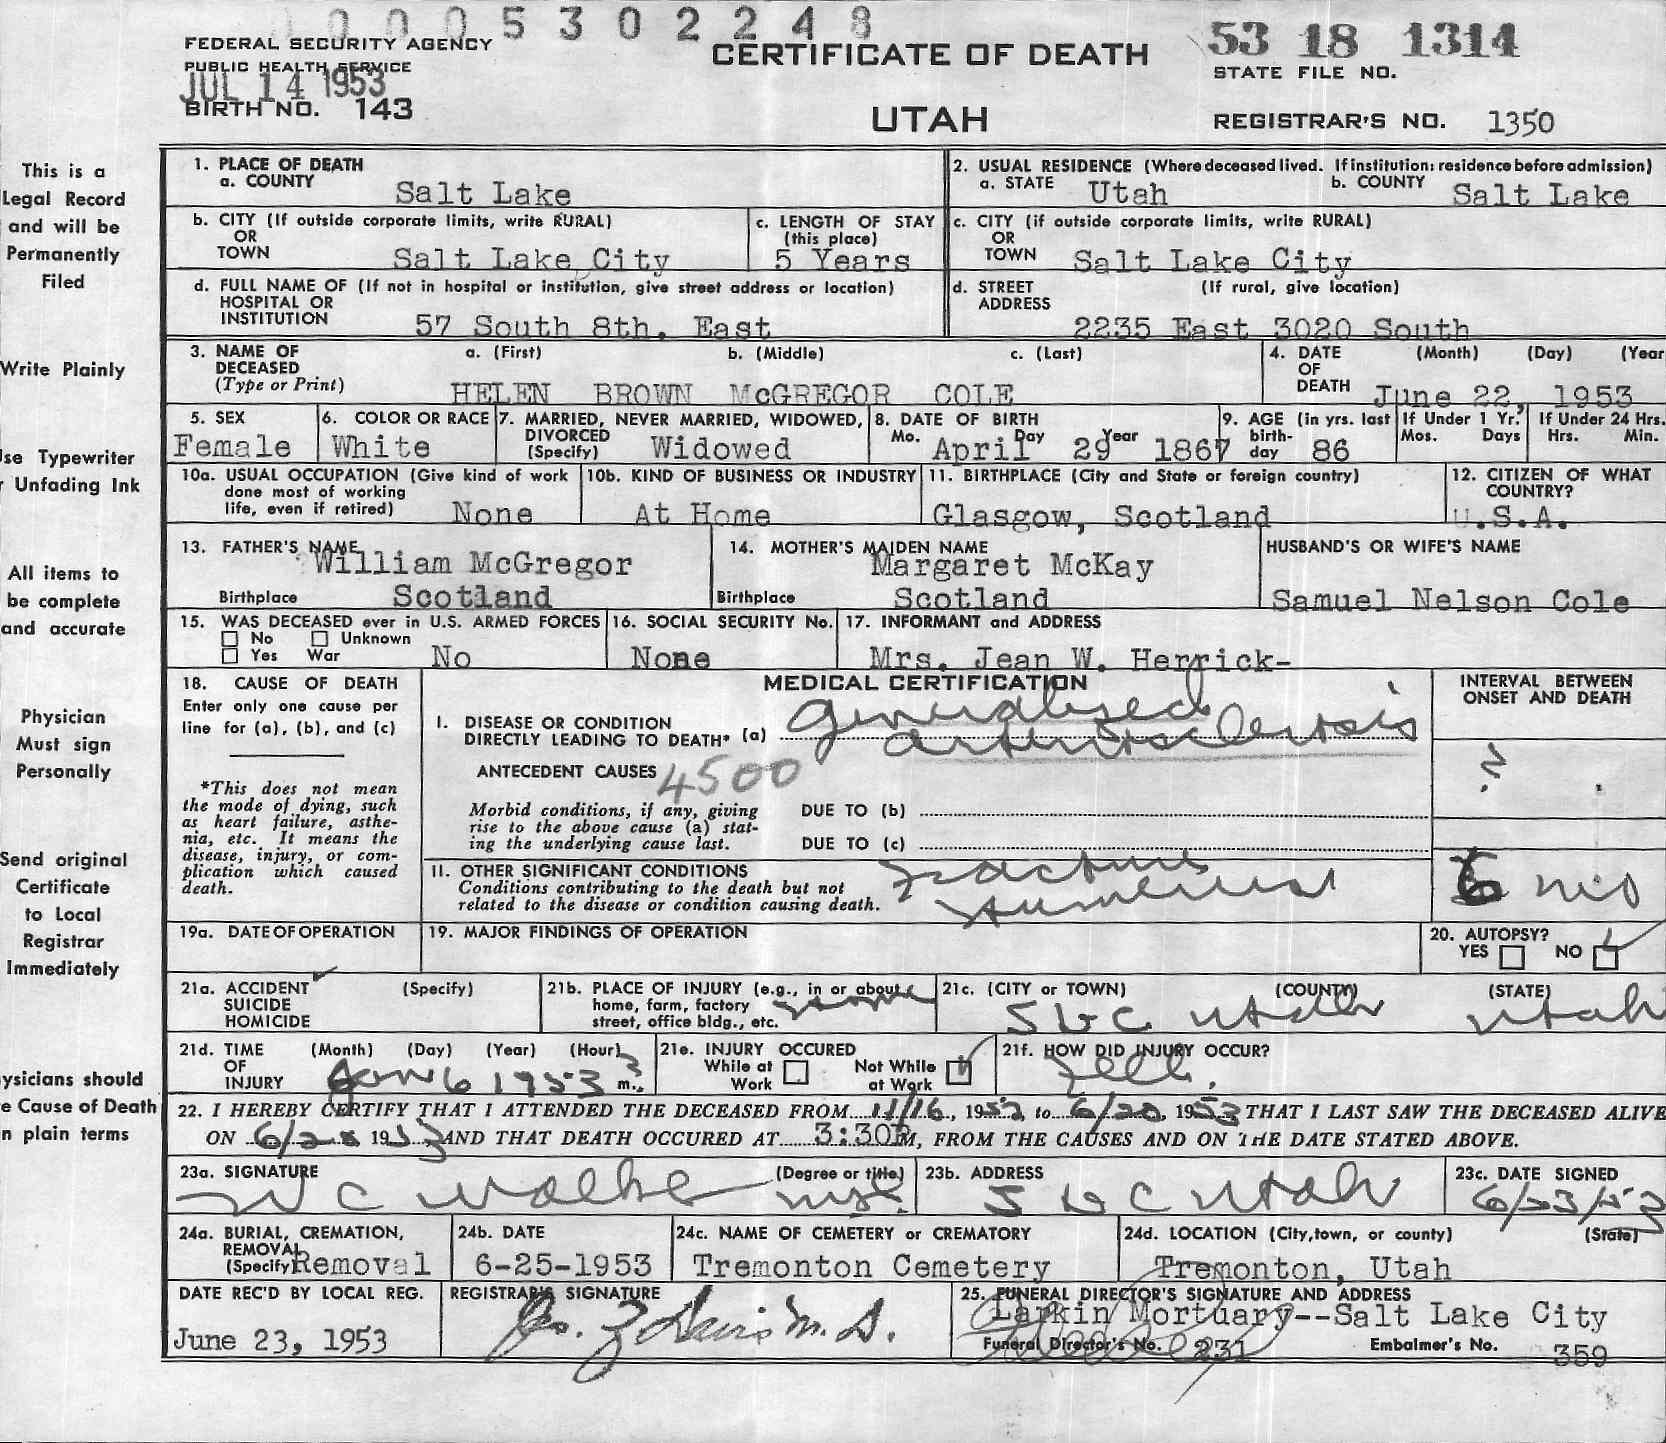 0005302248
FEDERAL SECURITY AGENCY
PUBLIC HEALTH SERVICE
JUL 14 1953
BIRTH NO. 143
CERTIFICATE OF DEATH
UTAH
53 18 1314
STATE FILE NO.
REGISTRAR'S NO. 1350
This is a
Legal Record
and will be
Permanently
Filed
Write Plainly
se Typewriter
r Unfading Ink
All items to
be complete
and accurate
Physician
Must sign
Personally
Send original
Certificate
to Local
Registrar
Immediately
ysicians should
e Cause of Death
n plain terms
1. PLACE OF DEATH
a. COUNTY Salt Lake
2. USUAL RESIDENCE (Where deceased lived. If institution: residence before admission)
a. STATE Utah b. COUNTY Salt Lake
b. CITY (If outside corporate limits, write RURAL)
OR
TOWN Salt Lake City
c. LENGTH OF STAY
(this place)
5 Years
c. CITY (if outside corporate limits, write RURAL)
OR
TOWN Salt Lake City
d. FULL NAME OF (If not in hospital or institution, give street address or location)
HOSPITAL OR
INSTITUTION 57 South 8th. East
d. STREET (If rural, give location)
ADDRESS
2235 East 3020 South
3. NAME OF a. (First) b. (Middle) c. (Last)
DECEASED
(Type or Print) HELEN BROWN McGREGOR COLE
4. DATE (Month) (Day) (Year
OF
DEATH June 22, 1953
5. SEX
Female
6. COLOR OR RACE
White
7. MARRIED, NEVER MARRIED, WIDOWED,
DIVORCED
(Specify) Widowed
8. DATE OF BIRTH
Mo. Day Year
April 29 1867
9. AGE (in yrs. last
birth-
day 86
If Under 1 Yr.
Mos. Days
If Under 24 Hrs.
Hrs. Min.
10a. USUAL OCCUPATION (Give kind of work
done most of working
life, even if retired) None
10b. KIND OF BUSINESS OR INDUSTRY
At Home
11. BIRTHPLACE (City and State or foreign country)
Glasgow, Scotland
12. CITIZEN OF WHAT
COUNTRY?
U.S.A.
13. FATHER'S NAME
William McGregor
Birthplace Scotland
14. MOTHER'S MAIDEN NAME
Margaret McKay
Birthplace Scotland
HUSBAND'S OR WIFE'S NAME
Samuel Nelson Cole
15. WAS DECEASED ever in U.S. ARMED FORCES
No Unknown
Yes War No
16. SOCIAL SECURITY No.
None
17. INFORMANT and ADDRESS
Mrs. Jean W. Herrick-
18. CAUSE OF DEATH
Enter only one cause per
line for (a), (b), and (c)
*This does not mean
the mode of dying, such
as heart failure, asthe-
nia, etc. It means the
disease, injury, or com-
plication which caused
death.
MEDICAL CERTIFICATION
I. DISEASE OR CONDITION
DIRECTLY LEADING TO DEATH* (a) Generalized
arteriosclerosis
ANTECEDENT CAUSES 4500
Morbid conditions, if any, giving
rise to the above cause (a) stat-
ing the underlying cause last.
DUE TO (b)
DUE TO (c)
11. OTHER SIGNIFICANT CONDITIONS
Conditions contributing to the death but not
related to the disease or condition causing death.
Fracture
Humerus
INTERVAL BETWEEN
ONSET AND DEATH
?
6 mo
19a. DATE OF OPERATION
19. MAJOR FINDINGS OF OPERATION
20. AUTOPSY?
YES NO
21a. ACCIDENT (Specify)
SUICIDE
HOMICIDE
21b. PLACE OF INJURY (e.g., in or about
home, farm, factory
street, office bldg., etc.
home
21c. (CITY or TOWN) (COUNTY) (STATE)
SLC Utah Utah
21d. TIME (Month) (Day) (Year) (Hour)
OF
INJURY Jan 6 1953 3 m.
21e. INJURY OCCURED
While at Not While
Work at Work
21f. HOW DID INJURY OCCUR?
Fell.
22. I HEREBY CERTIFY THAT I ATTENDED THE DECEASED FROM 11/16, 1952 to 6/20, 1953 THAT I LAST SAW THE DECEASED ALIVE
ON 6/20 1953 AND THAT DEATH OCCURED AT 3:30P M, FROM THE CAUSES AND ON THE DATE STATED ABOVE.
23a. SIGNATURE (Degree or title)
W C Walker
23b. ADDRESS
SLC Utah
23c. DATE SIGNED
6/23/53
24a. BURIAL, CREMATION,
REMOVAL
(Specify) Removal
24b. DATE
6-25-1953
24c. NAME OF CEMETERY or CREMATORY
Tremonton Cemetery
24d. LOCATION (City, town, or county) (State)
Tremonton, Utah
DATE REC'D BY LOCAL REG.
June 23, 1953
REGISTRAR'S SIGNATURE
Davis M. D.
25. FUNERAL DIRECTOR'S SIGNATURE AND ADDRESS
Larkin Mortuary--Salt Lake City
Funeral Director's No. 231 Embalmer's No. 359